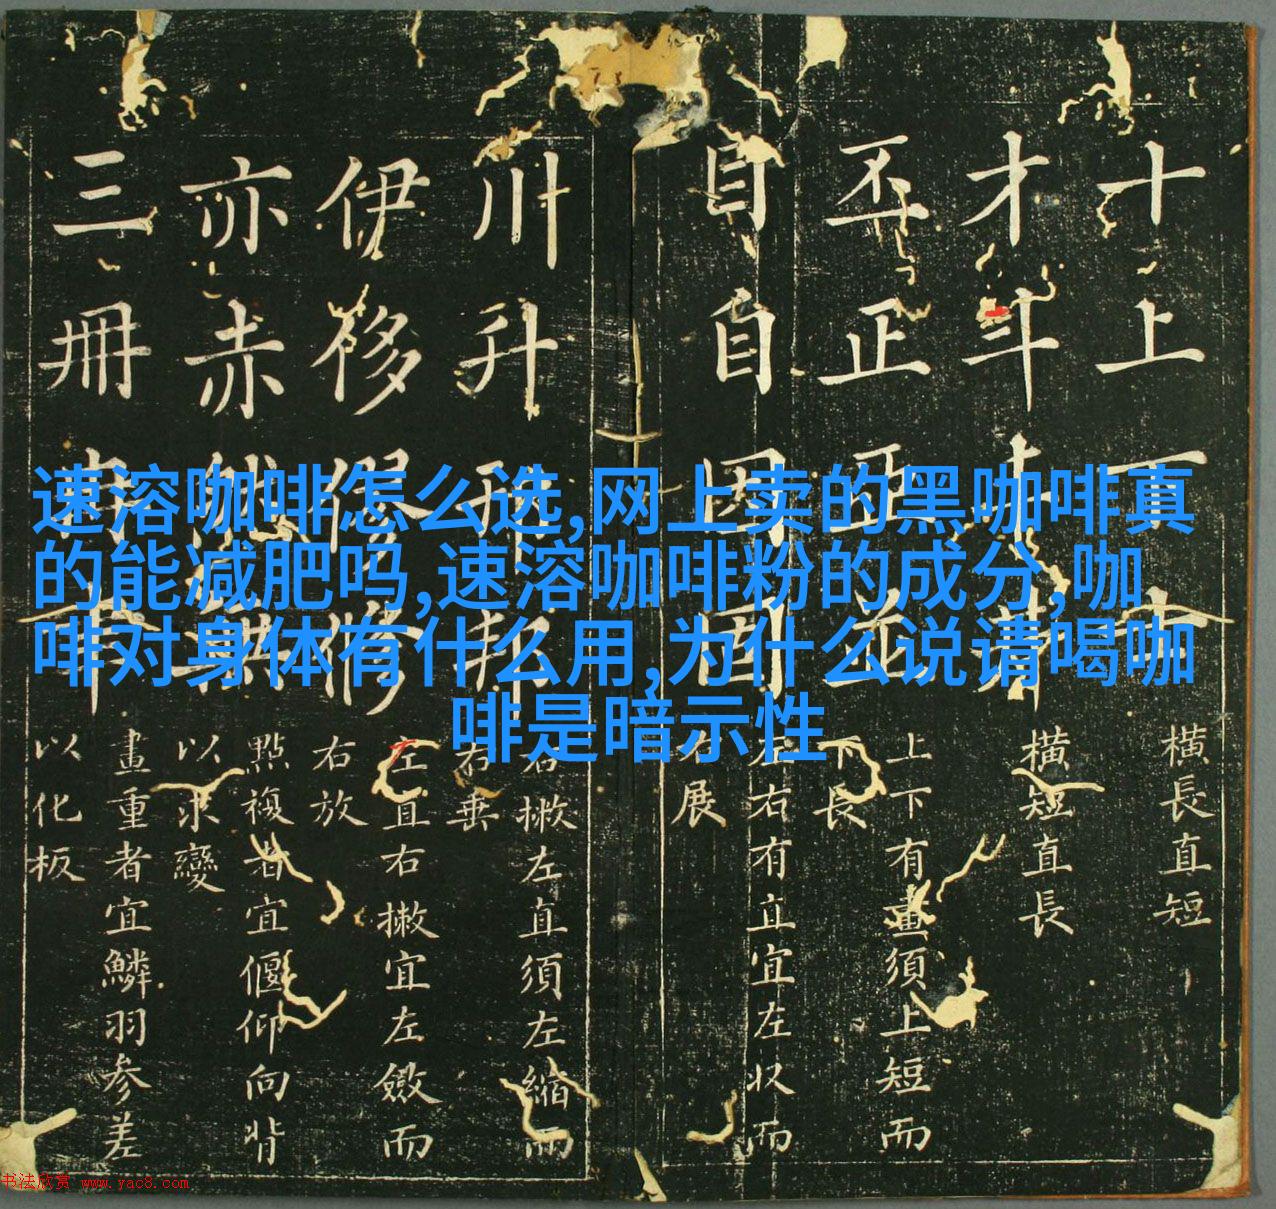 速溶咖啡怎么选,网上卖的黑咖啡真
的能减肥吗,速溶咖啡粉的成分,咖
啡对身体有什么用,为什么说请喝咖
啡是暗示性
十上
橫長直短
才斗
橫短直長
丕正
上下有畫須上短而
下長
目自因固
左右有直宜左收而
右展
川升
右撇左直須左縮而
右垂
伊侈
左直右撇宜左斂而
右放
亦赤
點複者宜偃仰向背
以求變
三冊
畫重者宜鱗羽參差
以化板
书法欣赏 www.yac8.com